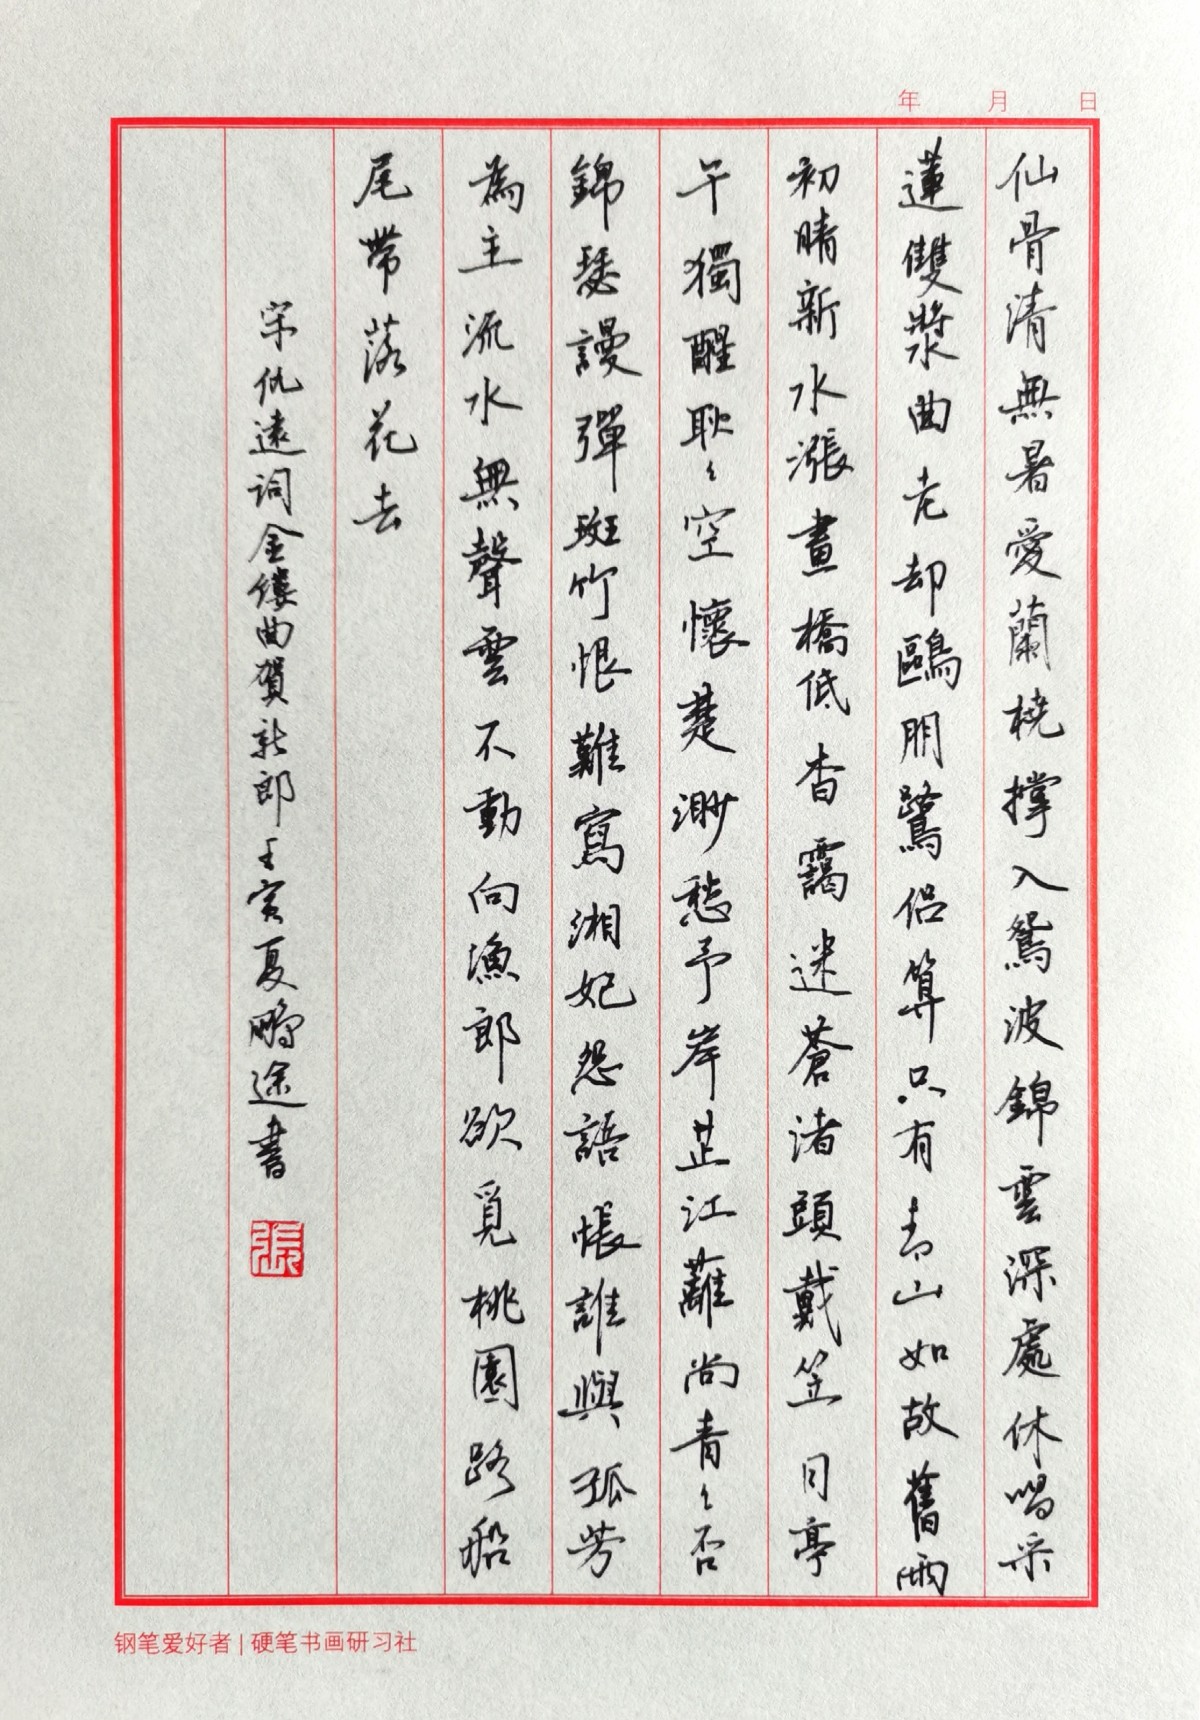 年 月 日
仙骨清無暑愛蘭橈撐入鴛波錦雲深處休唱采
蓮雙槳曲老却鷗朋鷺侶算只有青山如故舊雨
初晴新水漲畫橋低杳靄迷蒼渚頭戴笠日亭
午獨醒耿〻空懷楚渺愁予岸芷江蘺尚青〻否
錦瑟謾彈斑竹恨難寫湘妃怨語悵誰與孤芳
為主流水無聲雲不動向漁郎欲覓桃園路船
尾帶落花去
宋仇遠词金缕曲賀新郎壬寅夏鵬途書
張
钢笔爱好者 | 硬笔书画研习社